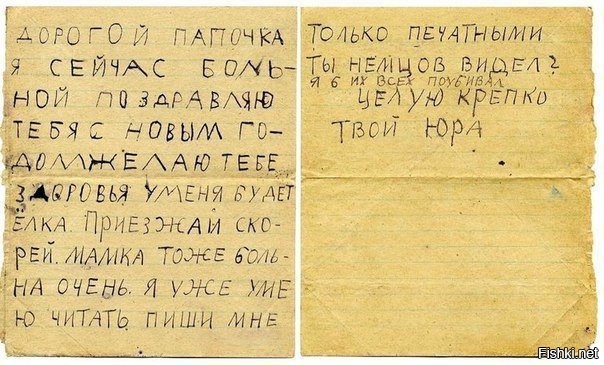 ДОРОГОЙ ПАПОЧКА
Я СЕЙЧАС БОЛЬ-
НОЙ ПОЗДРАВЛЯЮ
ТЕБЯ С НОВЫМ ГО-
ДОМ ЖЕЛАЮ ТЕБЕ
ЗДОРОВЬЯ У МЕНЯ БУДЕТ
ЁЛКА. ПРИЕЗЖАЙ СКО-
РЕЙ. МАМКА ТОЖЕ БОЛЬ-
НА ОЧЕНЬ. Я УЖЕ УМЕ
Ю ЧИТАТЬ ПИШИ МНЕ
ТОЛЬКО ПЕЧАТНЫМИ
ТЫ НЕМЦОВ ВИДЕЛ?
Я Б ИХ ВСЕХ ПОУБИВАЛ
ЦЕЛУЮ КРЕПКО
ТВОЙ ЮРА
Fishki.net